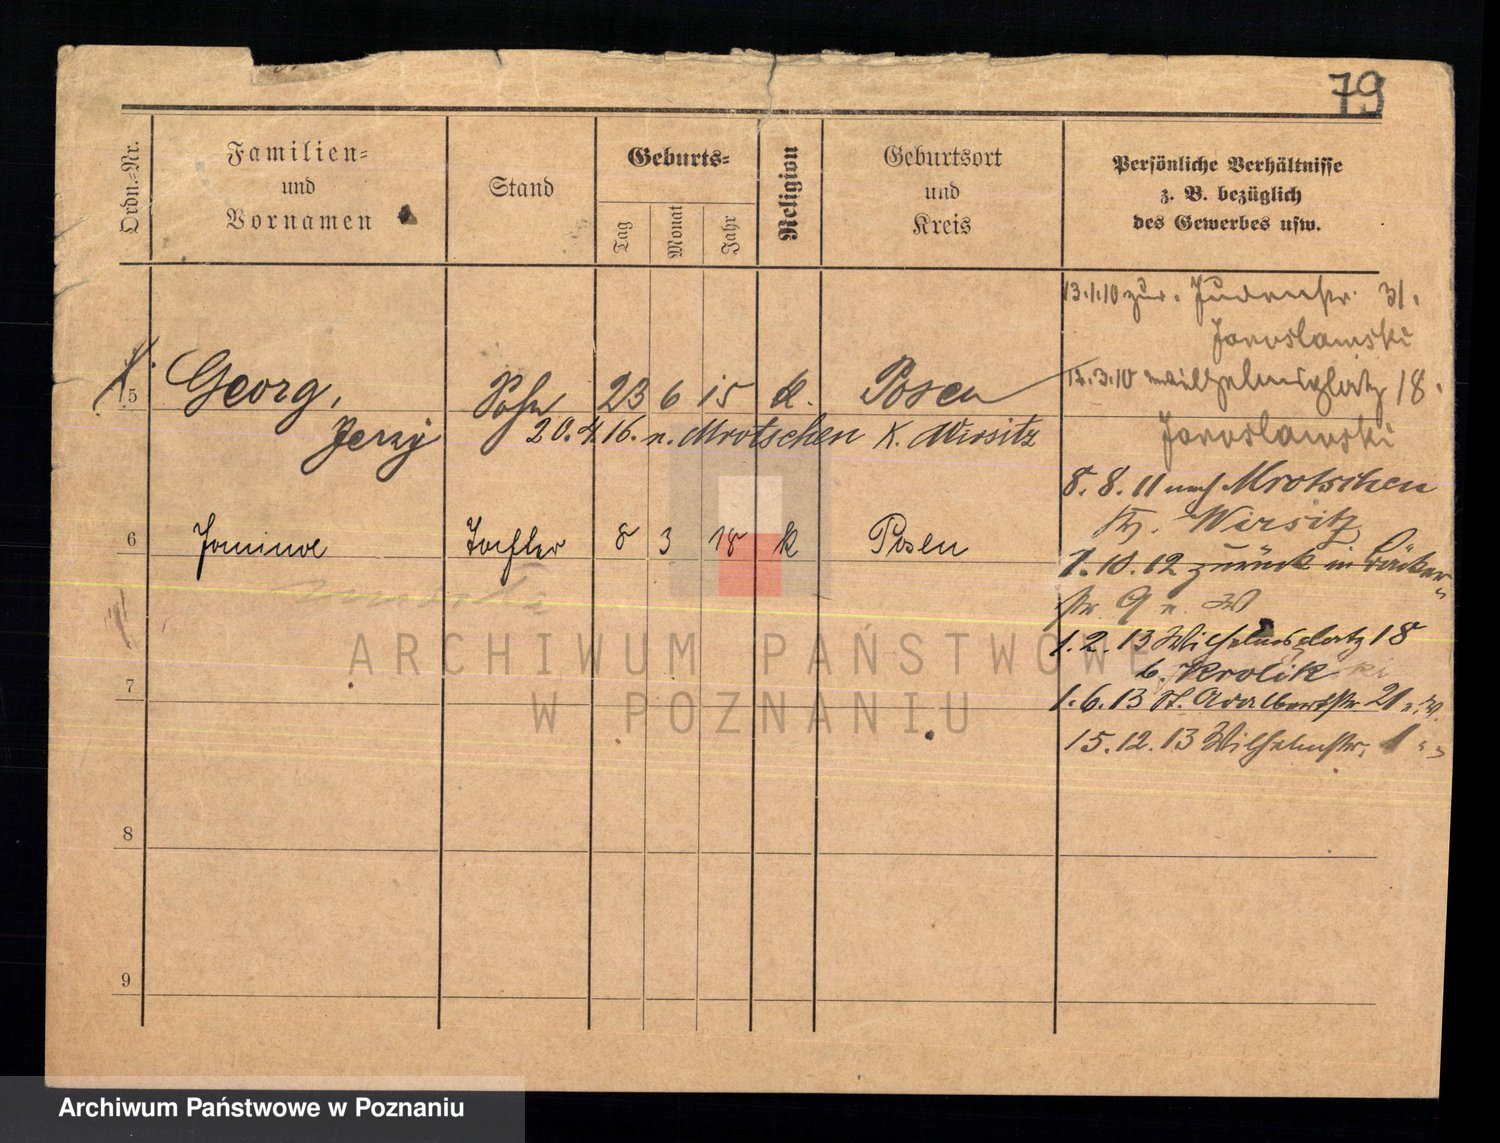 79
Ordn.=Nr.
Familien=
und
Vornamen
Stand
Geburts=
Tag
Monat
Jahr
Religion
Geburtsort
und
Kreis
Persönliche Verhältnisse
z. B. bezüglich
des Gewerbes usw.
13.1.10 zur. Judenstr. 31.
Jaroslawski
5 Georg, Sohn 23 6 15 k. Posen
.3.10 Wilhelmsplatz 18.
Jerzy
20.4.16. n. Mrotschen K. Wirsitz
Jaroslawski
8.8.11 nach Mrotschen
Kr. Wirsitz
6 Janina Tochter 8 3 18 k Posen
1.10.12 zurück in Bäcker
str 9 n. W
1.2.13 Wilhelmsplatz 18
b. Krolik
7
1.6.13 St. Adalbertstr. 21 n. W.
15.12.13 Wilhelmstr. 1 " "
8
9
ARCHIWUM PAŃSTWOWE
W POZNANIU
Archiwum Państwowe w Poznaniu